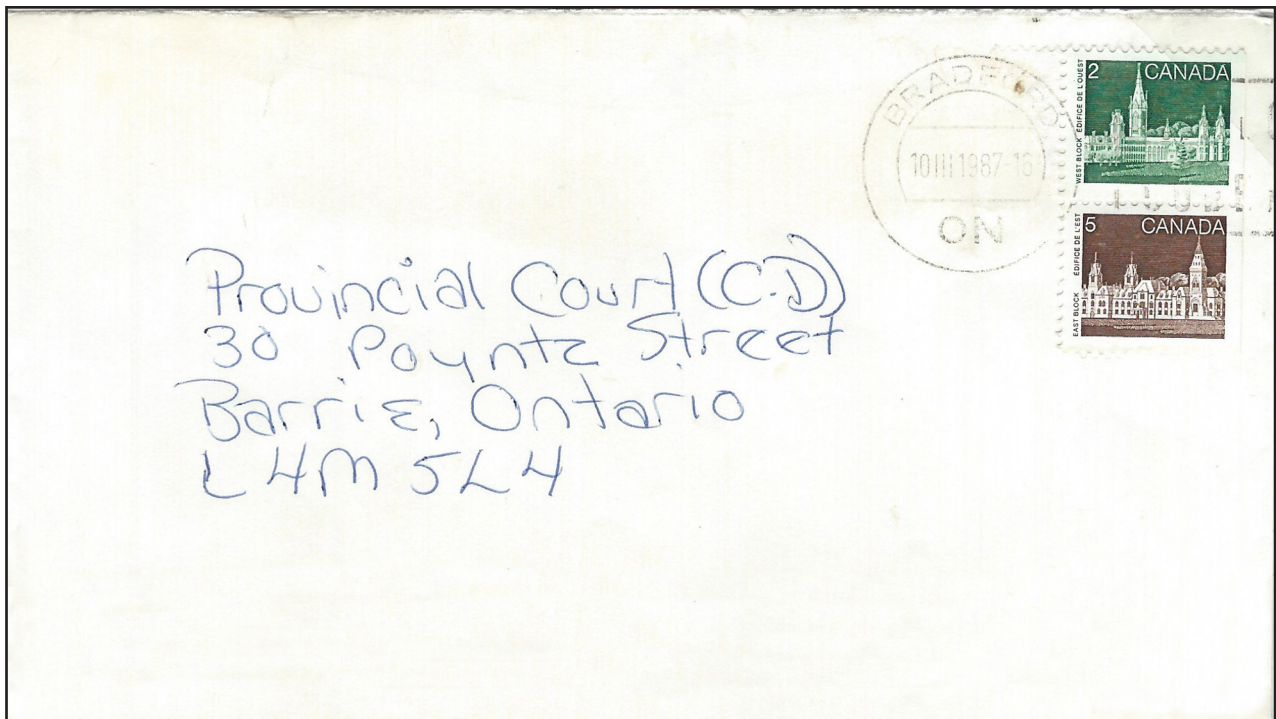 BRADFORD
10 III 1987-16
ON
2 CANADA
WEST BLOCK ÉDIFICE DE L'OUEST
5 CANADA
EAST BLOCK ÉDIFICE DE L'EST
Provincial Court (C.D)
30 Poyntz Street
Barrie, Ontario
L4M 5L4